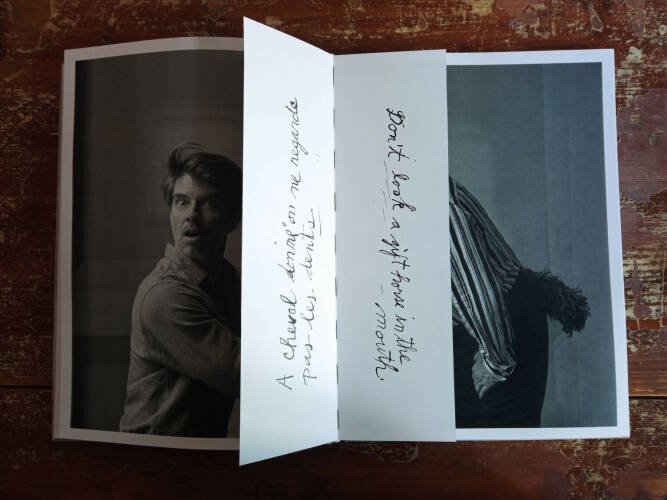 A cheval donné on ne regarde
pas les dents
Don't look a gift horse in the
mouth.